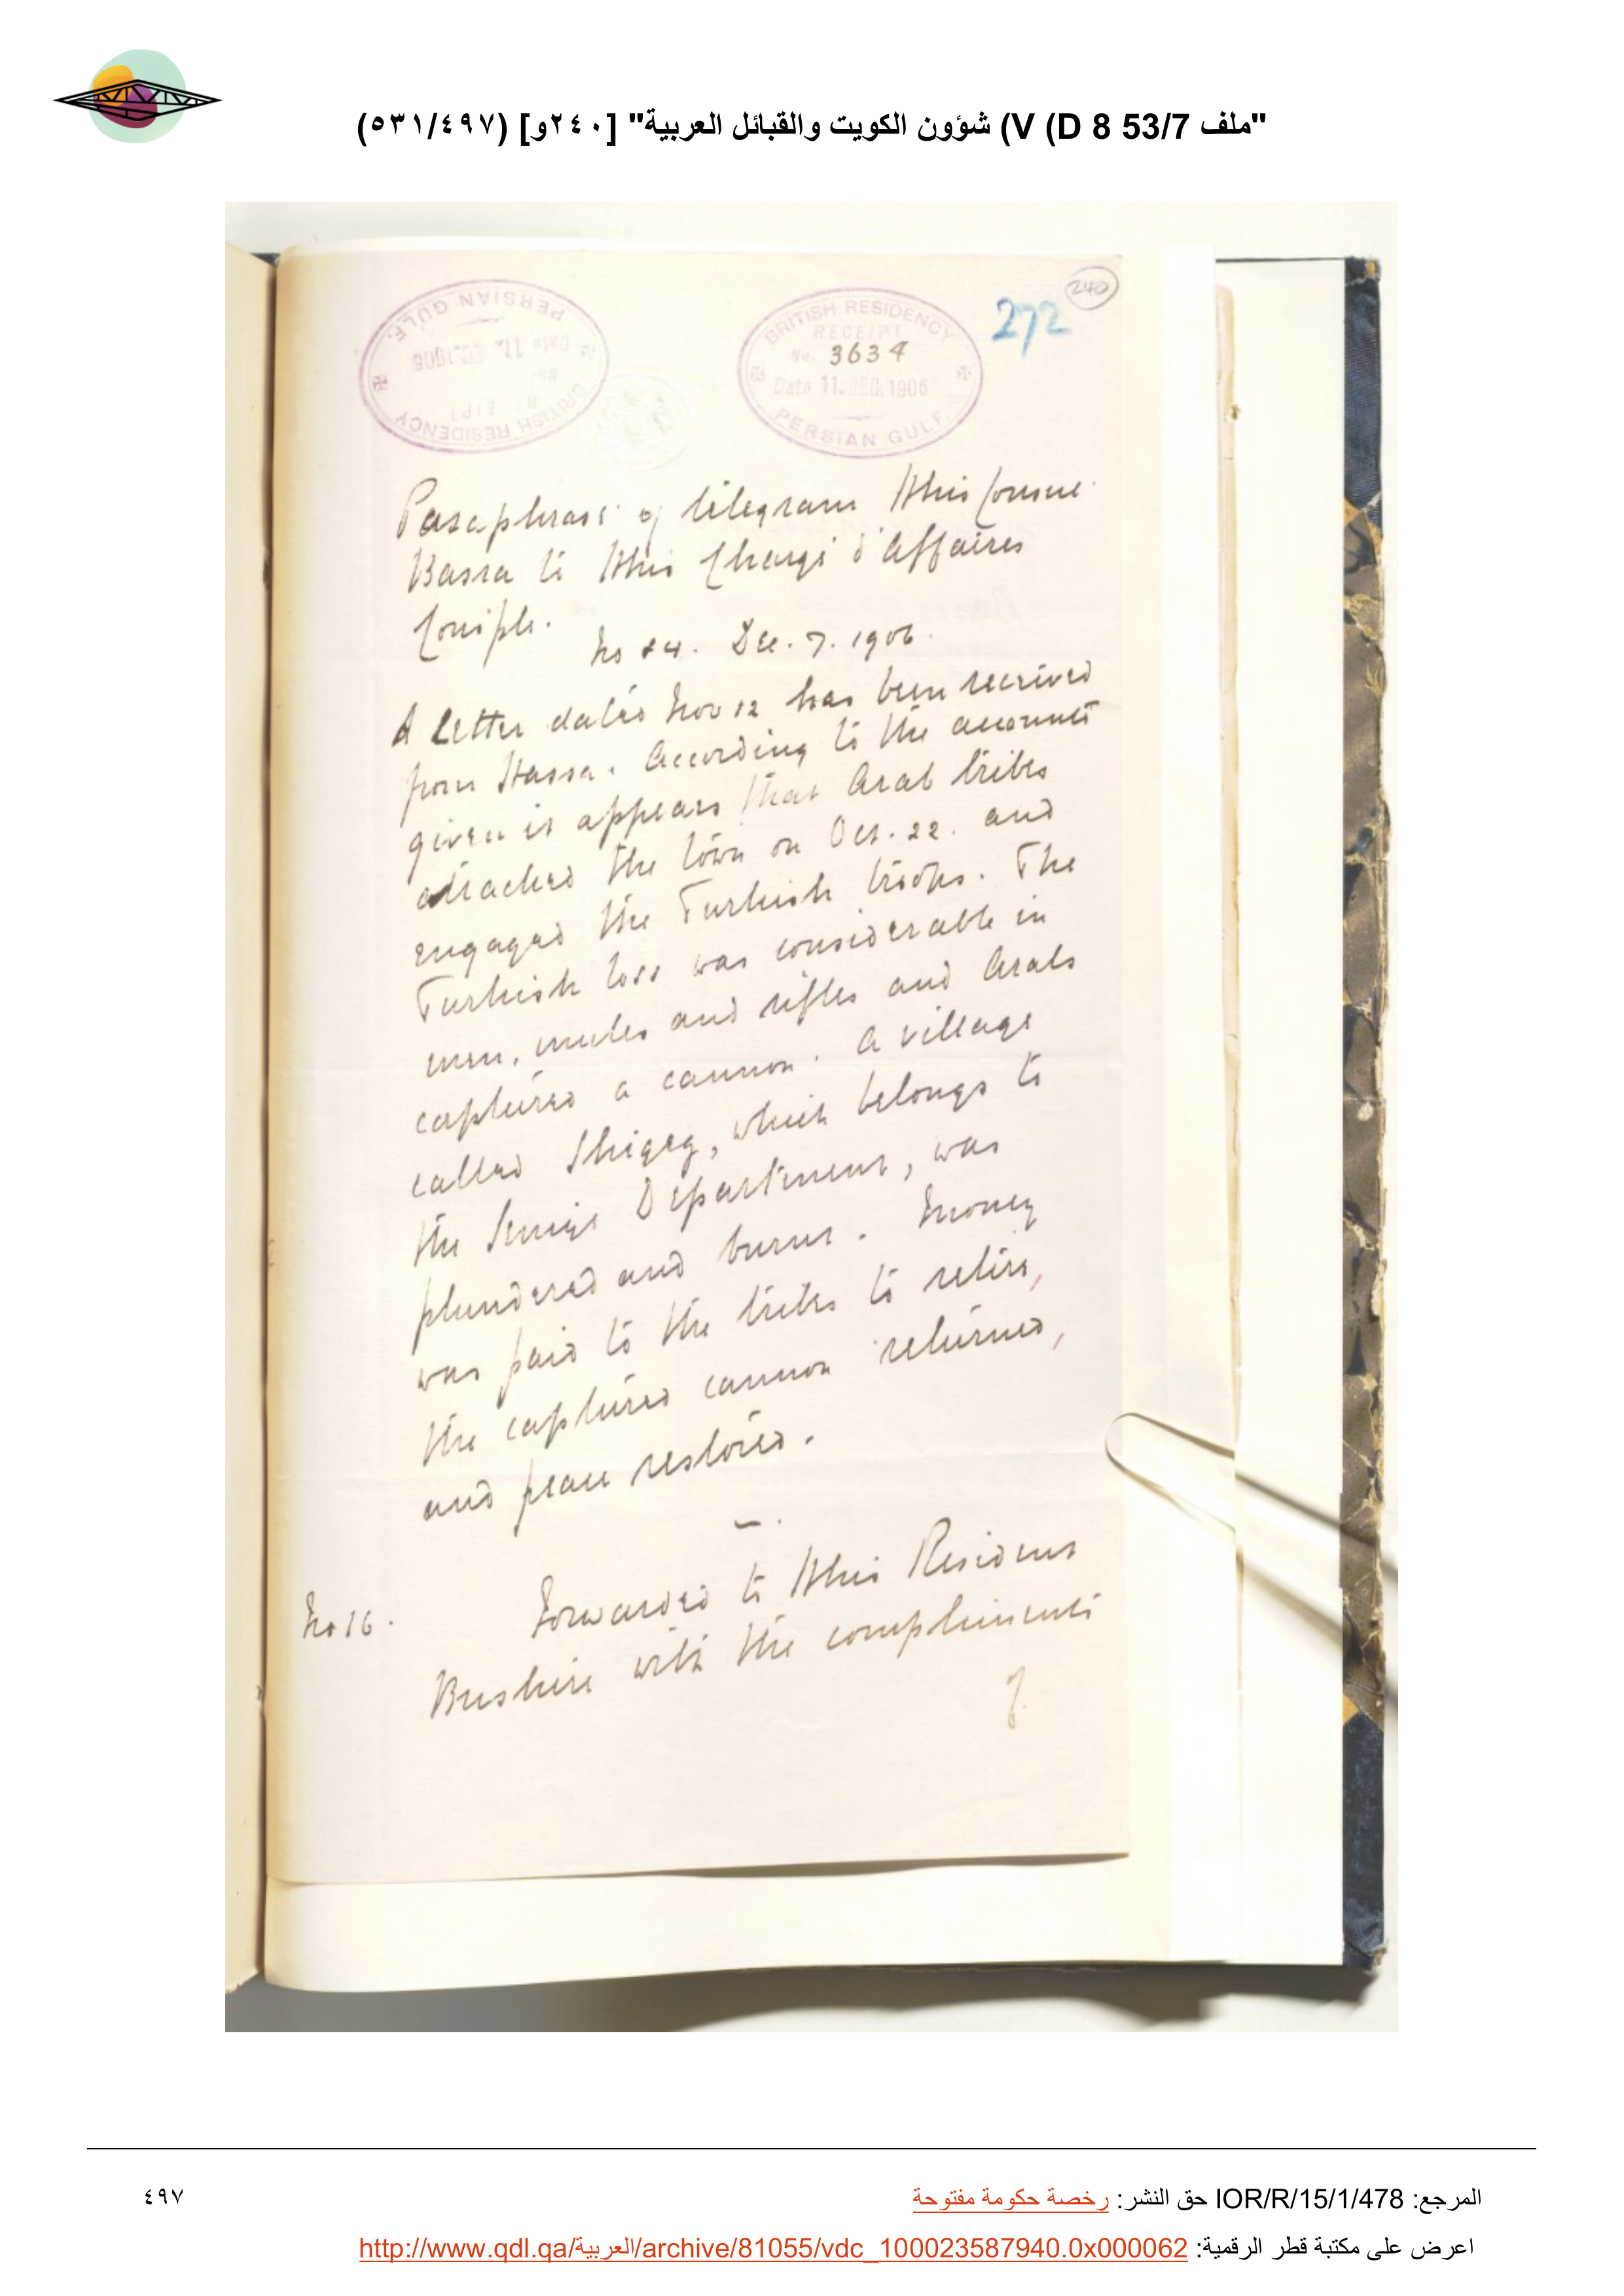 "ملف 53/7 V (D 8) شؤون الكويت والقبائل العربية" [٢٤٠و] (٥٣١/٤٩٧)
240
272
BRITISH RESIDENCY
RECEIPT
No. 3634
Date 11. DEC. 1906
PERSIAN GULF.
BRITISH RESIDENCY
Date 11. DEC. 1906
PERSIAN GULF.
Paraphrase of telegram HMs Consul
Basra to HMs Chargé d'Affaires
Conple.
No 84. Dec. 7. 1906.
A letter dated Nov 12 has been received
from Hassa. According to the accounts
given it appears that Arab tribes
attacked the town on Oct. 22. and
engaged the Turkish troops. The
Turkish loss was considerable in
men, mules and rifles and Arabs
captured a cannon. A village
called Shigeg, which belongs to
the Senige Department, was
plundered and burnt. Money
was paid to the tribes to retire,
the captured cannon returned,
and peace restored.
No 16. Forwarded to HMs Resident
Bushire with the compliments
of
المرجع: IOR/R/15/1/478 حق النشر: رخصة حكومة مفتوحة
٤٩٧
اعرض على مكتبة قطر الرقمية: http://www.qdl.qa/العربية/archive/81055/vdc_100023587940.0x000062